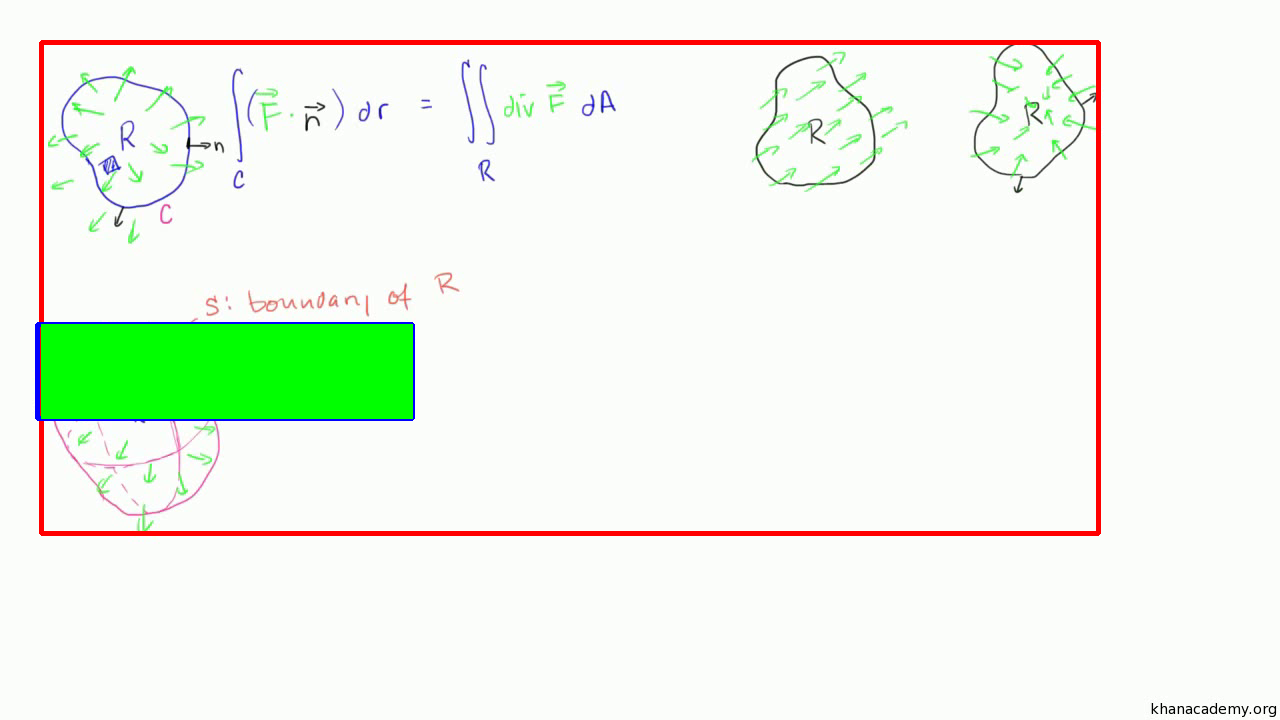 R n C
∫_C (F⃗ · n⃗) dr = ∬_R div F⃗ dA
R
R
S: boundary of R
khanacademy.org